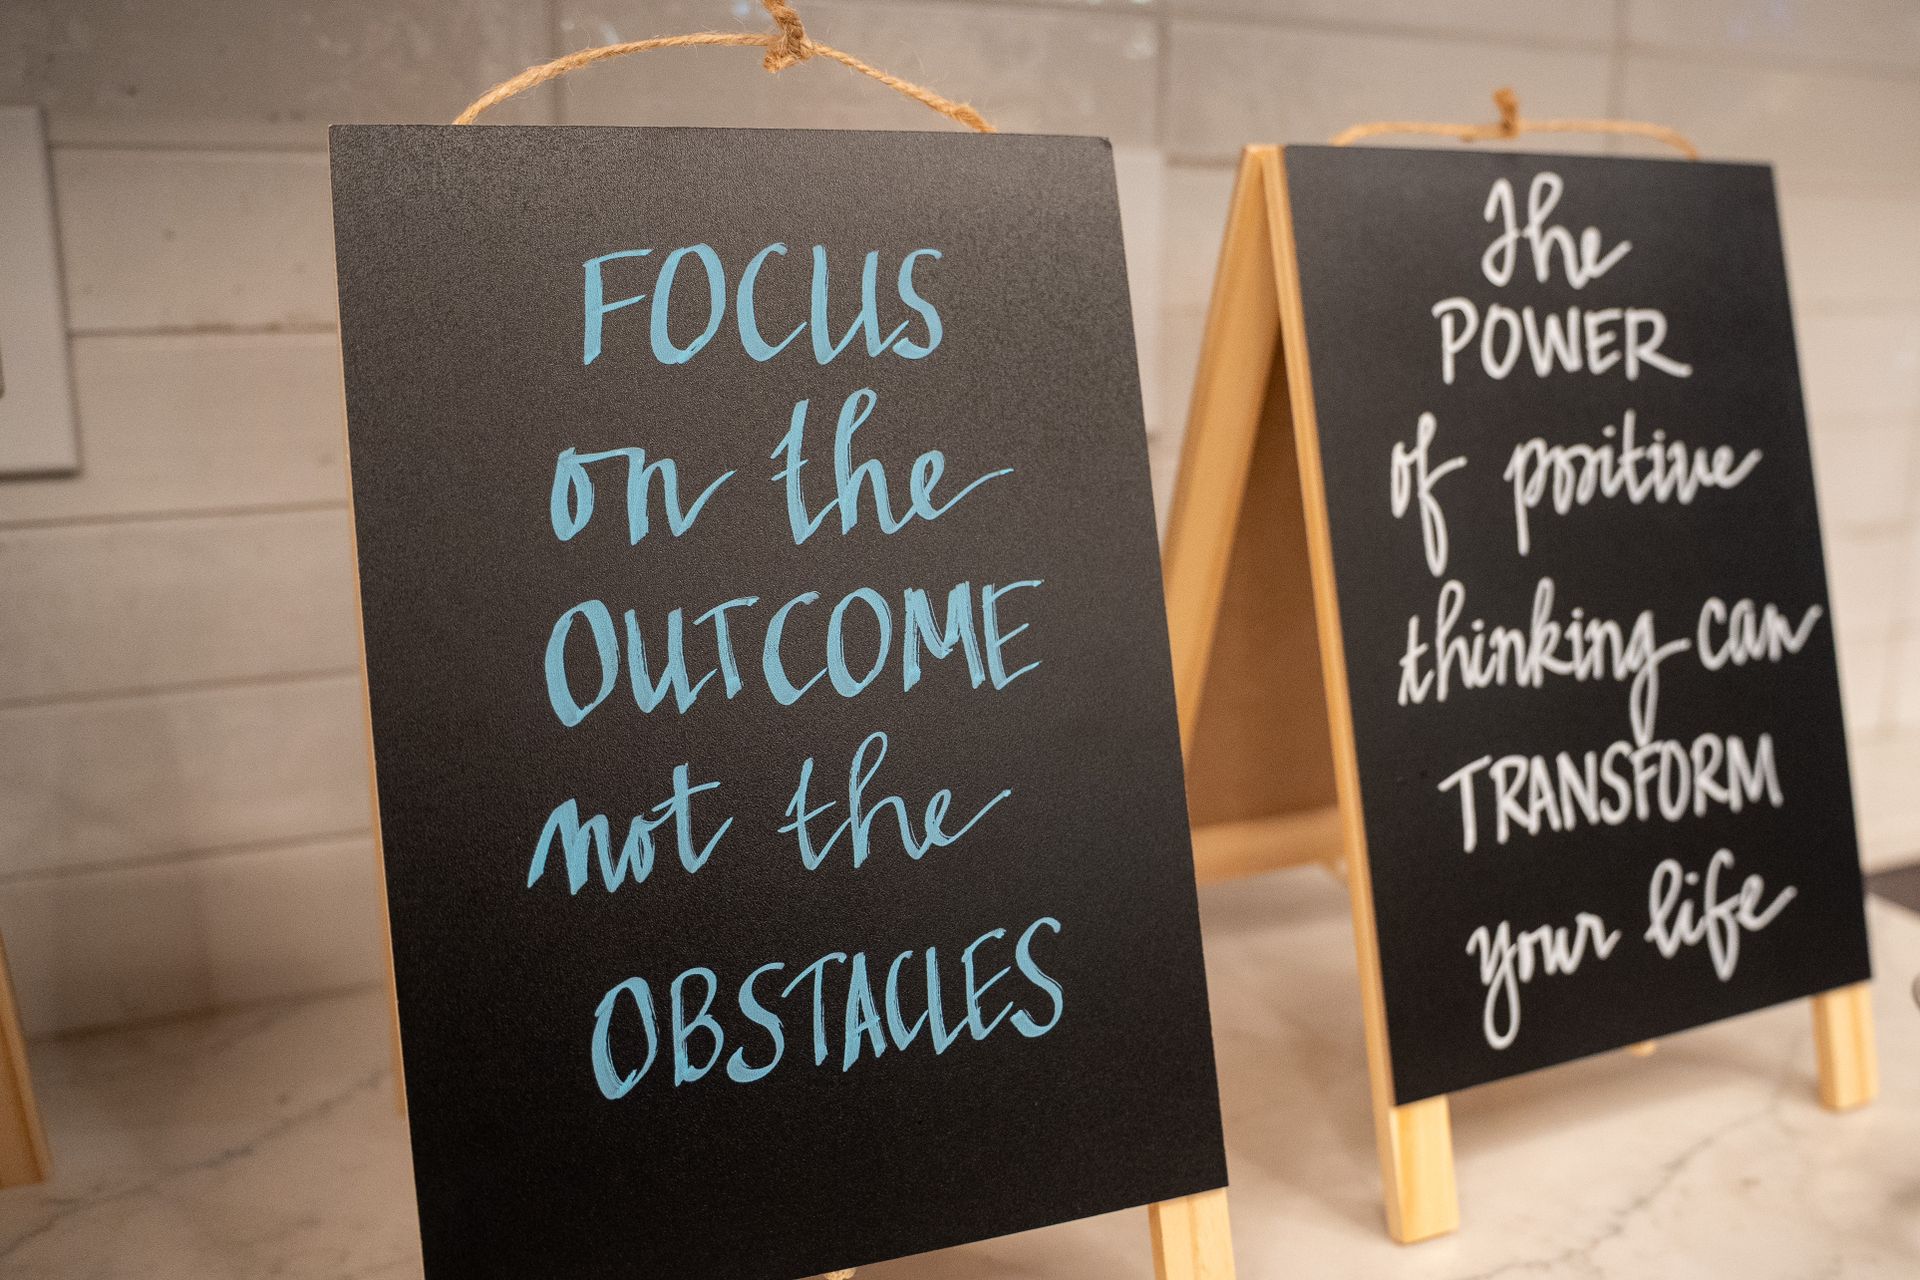 FOCUS
on the
OUTCOME
not the
OBSTACLES
The
POWER
of positive
thinking can
TRANSFORM
your life